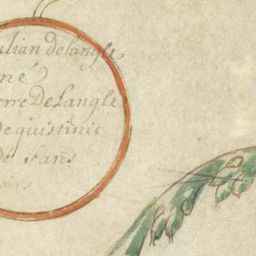 ulian de langle
né
erre De Langle
De quistinic
de sans